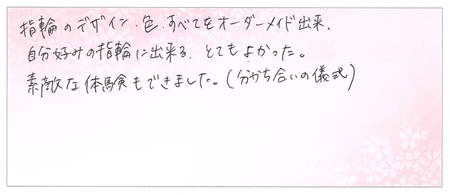 指輪のデザイン、色、すべてをオーダーメイド出来、
自分好みの指輪に出来る、とてもよかった。
素敵な体験もできました。(分かち合いの儀式)